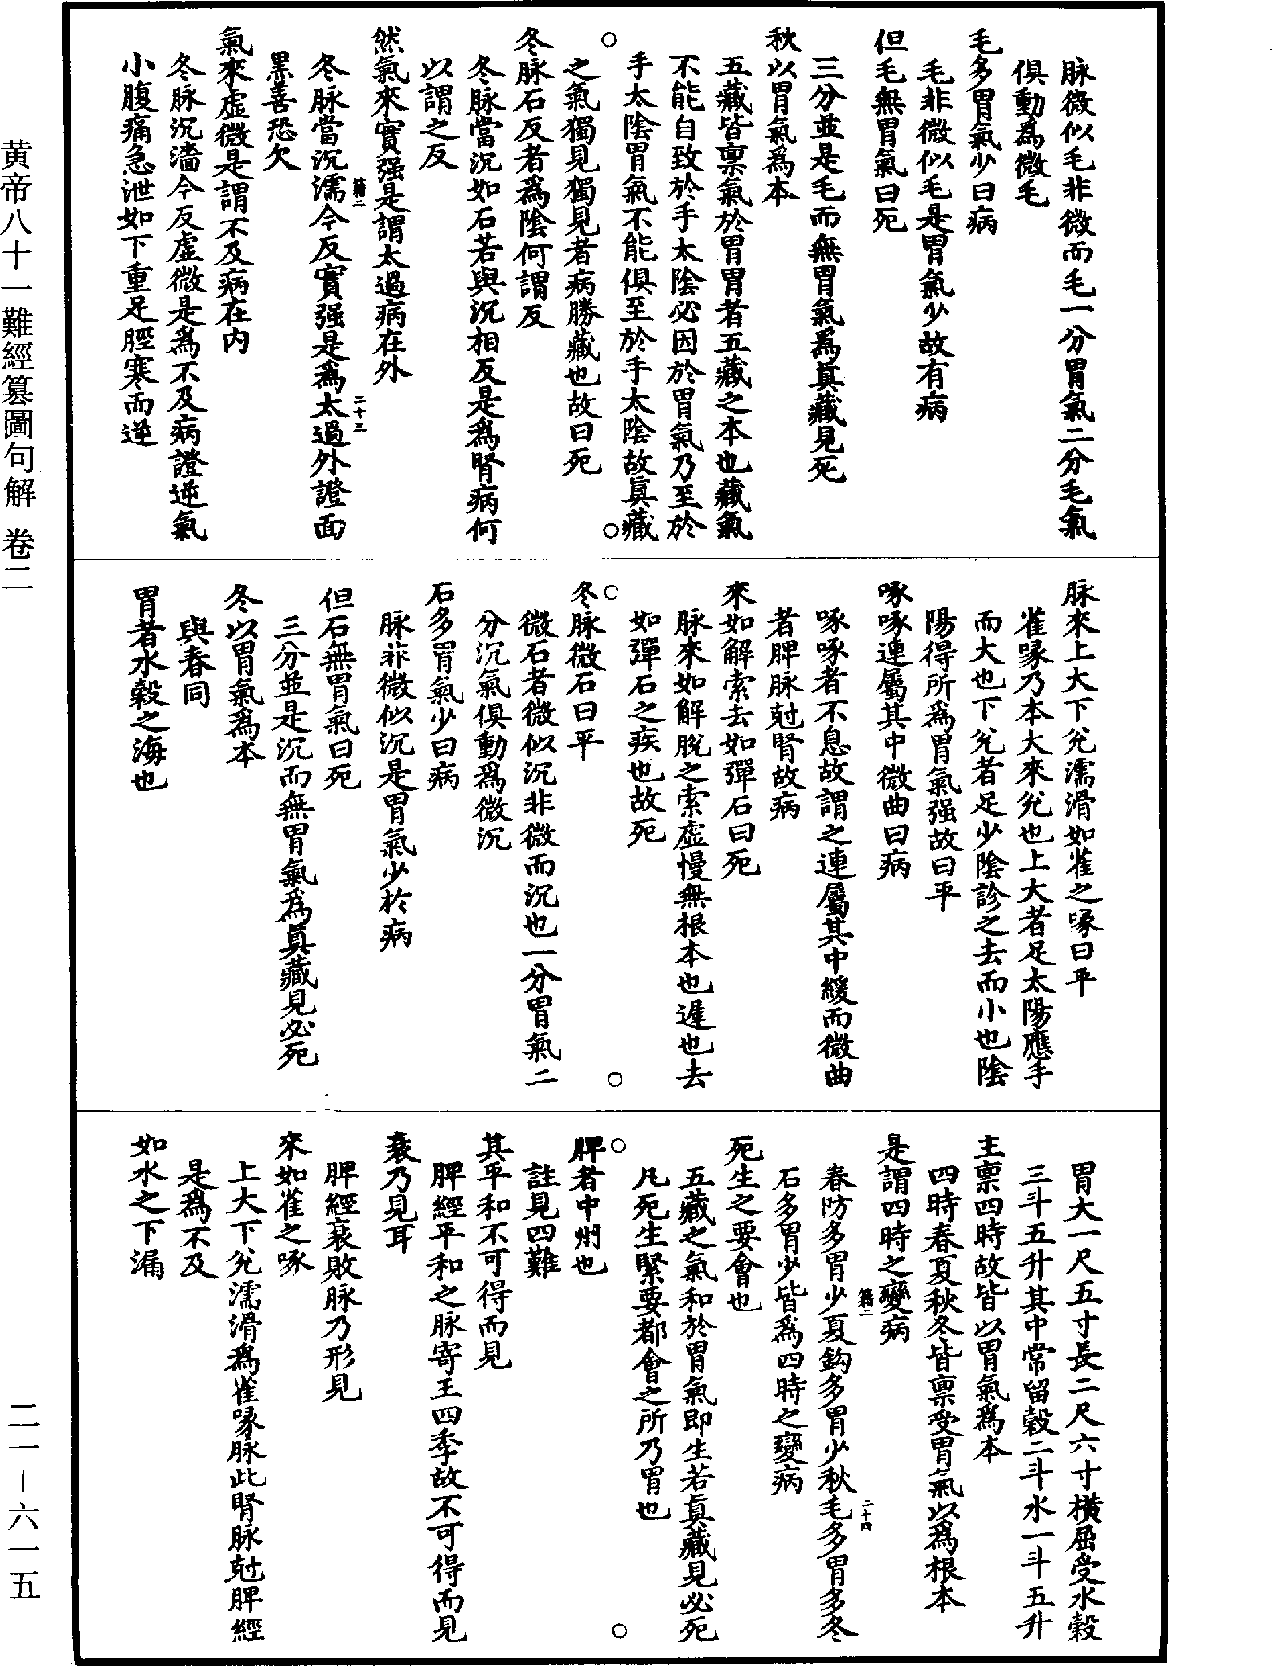 黃帝八十一難經纂圖句解 卷二
二一—六一五
脉微似毛非微而毛一分胃氣二分毛氣
俱動為微毛
毛多胃氣少曰病
毛非微似毛是胃氣少故有病
但毛無胃氣曰死
三分並是毛而無胃氣為真藏見死
秋以胃氣為本
五藏皆禀氣於胃胃者五藏之本也藏氣
不能自致於手太陰必因於胃氣乃至於
手太陰胃氣不能俱至於手太陰故真藏
之氣獨見獨見者病勝藏也故曰死
冬脉石反者為陰何謂反
冬脉當沉如石若與沉相反是為腎病何
以謂之反
然氣來實强是謂太過病在外
冬脉當沉濡今反實强是為太過外證面
黑善恐欠
氣來虛微是謂不及病在内
冬脉沉濇今反虛微是為不及病證逆氣
小腹痛急泄如下重足脛寒而逆
籍二
二十三
脉來上大下兊濡滑如雀之啄曰平
雀啄乃本大來兊也上大者足太陽應手
而大也下兊者足少陰診之去而小也陰
陽得所為胃氣强故曰平
啄啄連屬其中微曲曰病
啄啄者不息故謂之連屬其中緩而微曲
者脾脉尅腎故病
來如解索去如彈石曰死
脉來如解脫之索虛慢無根本也遲也去
如彈石之疾也故死
冬脉微石曰平
微石者微似沉非微而沉也一分胃氣二
分沉氣俱動為微沉
石多胃氣少曰病
脉非微似沉是胃氣少於病
但石無胃氣曰死
三分並是沉而無胃氣為真藏見必死
冬以胃氣為本
與春同
胃者水穀之海也
胃大一尺五寸長二尺六寸橫屈受水穀
三斗五升其中常留穀二斗水一斗五升
主禀四時故皆以胃氣為本
四時春夏秋冬皆禀受胃氣以為根本
是謂四時之變病
春防多胃少夏鈎多胃少秋毛多胃多冬
石多胃少皆為四時之變病
死生之要會也
五藏之氣和於胃氣即生若真藏見必死
凡死生緊要都會之所乃胃也
脾者中州也
註見四難
其平和不可得而見
脾經平和之脉寄王四季故不可得而見
衰乃見耳
脾經衰敗脉乃形見
來如雀之啄
上大下兊濡滑為雀啄脉此腎脉尅脾經
是為不及
如水之下漏
籍二
二十四